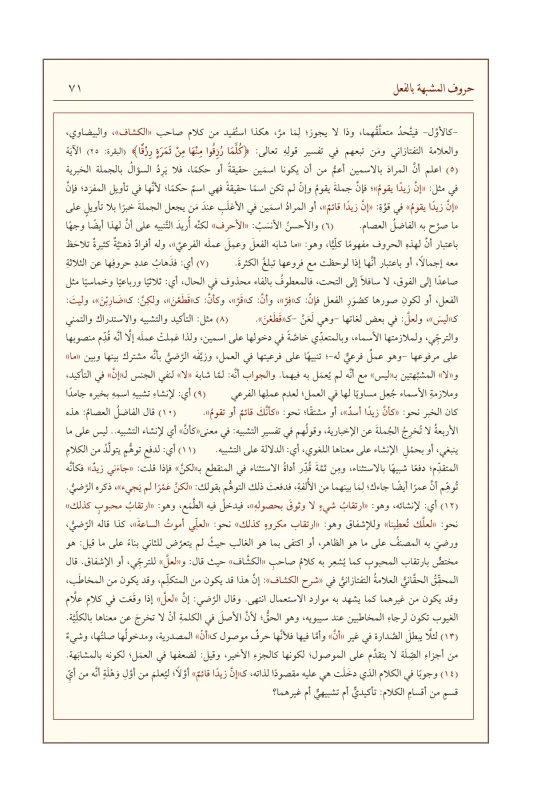 حروف المشبهة بالفعل ٧١
-كالأوّل- فيتّحدُ متعلَّقُهما، وذا لا يجوز؛ لِمَا مرّ، هكذا استُفيد من كلام صاحب «الكشاف»، والبيضاوي،
والعلامة التفتازاني ومَن تبعهم في تفسير قولِهِ تعالى: ﴿كُلَّمَا رُزِقُوا مِنْهَا مِنْ ثَمَرَةٍ رِزْقًا﴾ (البقرة: ٢٥) الآية
(٥) اعلم أنّ المرادَ بالاسمين أعمُّ من أن يكونا اسمَين حقيقةً أو حكمًا، فلا يَرِدُ السؤالُ بالجملة الخبرية
في مثل: «إنَّ زيدًا يقومُ»؛ فإنّ جملةَ يقومُ وإنْ لم تكن اسمًا حقيقةً فهي اسمٌ حكمًا؛ لأنّها في تأويل المفرَد؛ فإنَّ
«إنَّ زيدًا يقومُ» في قوّة: «إنَّ زيدًا قائمٌ»، أو المرادُ اسمَين في الأغلَبِ عندَ مَن يجعل الجملةَ خبرًا بلا تأويلٍ على
ما صرّح به الفاضلُ العصام. (٦) والأحسنُ الأنسَبُ: «الأحرف» لكنَّه أُريدَ التّنبيه على أنَّ لهذا أيضًا وجهًا
باعتبار أنّ لهذهِ الحروف مفهومًا كليًّا، وهو: «ما شابَه الفعلَ وعمِلَ عملَه الفرعيّ»، وله أفرادٌ ذهنيّةٌ كثيرةٌ تلاحَظ
معه إجمالًا، أو باعتبار أنّها إذا لوحظت مع فروعها تبلغُ الكثرةَ. (٧) أي: فذَهابُ عددِ حروفِها عن الثلاثةِ
صاعدًا إلى الفوق، لا سافلًا إلى التحت، فالمعطوفُ بالفاء محذوف في الحال، أي: ثلاثيًا ورباعيًا وخماسيًا مثل
الفعل، أو لكونِ صورِها كصُوَرِ الفعل فإنّ: كـ«فِرّ»، وأنّ: كـ«فَرّ»، وكأنّ: كـ«قَطَّعْنَ»، ولكنّ: كـ«ضَاربْنَ»، وليتَ:
كـ«ليسَ»، ولعلَّ: في بعض لغاتها -وهي لَعَنَّ -كـ«قَطَعْنَ». (٨) مثل: التأكيد والتشبيه والاستدراك والتمني
والترجّي، ولملازمتها الأسماء، وبالمتعدّي خاصّةً في دخولها على اسمين، ولذا عَمِلتْ عملَه إلّا أنّه قُدِّم منصوبها
على مرفوعها -وهو عملٌ فرعيٌّ له-؛ تنبيهًا على فرعيتها في العمل، وزيَّفَه الرّضيُّ بأنَّه مشترك بينها وبين «ما»
و«لا» المشبَّهتين بـ«ليس» مع أنّه لم يُعمَل به فيهما. والجواب أنَّه: لمَّا شابهَ «لا» لنفي الجنس لـ«إنَّ» في التأكيد،
وملازمةِ الأسماء جُعِل مساويًا لها في العمل؛ لعدم عملِها الفرعي (٩) أي: لإنشاءِ تشبيهِ اسمِهِ بخبره جامدًا
كان الخبر نحو: «كأنَّ زيدًا أسدٌ»، أو مشتقًا؛ نحو: «كأنَّكَ قائمٌ أو تقومُ». (١٠) قال الفاضلُ العصامُ: هذه
الأربعةُ لا تُخرِجُ الجُملةَ عن الإخبارية، وقولُهم في تفسيرِ التشبيه: في معنى«كأنّ» أي لإنشاء التشبيه.. ليس على ما
ينبغي، أو بحمْلِ الإنشاء على معناها اللغوي، أي: الدلالة على التشبيه. (١١) أي: لدفعِ توهُّمِ يتولَّدُ من الكلامِ
المتقدِّم؛ دفعًا شبيهًا بالاستثناء، ومِن ثمّةَ قُدِّر أداةُ الاستثناء في المنقطع بـ«لكنَّ» فإذا قلت: «جاءني زيدٌ» فكأنَّه
تُوهِّم أنَّ عمرًا أيضًا جاءك؛ لمَا بينهما من الأُلفةِ، فدفعتَ ذلك التوهُّم بقولك: «لكنَّ عَمْرًا لم يَجيء»، ذكره الرَّضيّ.
(١٢) أي: لإنشائه، وهو: «ارتقابُ شيءٍ لا وثوقَ بحصولِهِ»، فيدخلُ فيه الطَّمَع، وهو: «ارتقابُ محبوبٍ كذلك»
نحو: «لعلّك تُعطينا» وللإشفاق وهو: «ارتقاب مكروهٍ كذلك» نحو: «لعلّي أموتُ الساعةَ»، كذا قاله الرّضيُّ،
ورضيَ به المصنفُ على ما هو الظاهر، أو اكتفى بما هو الغالب حيثُ لم يتعرّض للثاني بناءً على ما قيل: هو
مختصٌّ بارتقابِ المحبوبِ كما يُشعِر به كلامُ صاحب «الكشَّاف» حيث قال: و«لعلَّ» للترجّي، أو الإشفاق. قال
المحقّقُ الحقَّانيُّ العلامةُ التفتازانيُّ في «شرح الكشاف»: إنَّ هذا قد يكون من المتكلِّم، وقد يكون من المخاطَب،
وقد يكون من غيرهما كما يشهد به موارد الاستعمال انتهى. وقال الرَّضيّ: إنَّ «لعلَّ» إذا وقعَت في كلامِ علَّام
الغيوبِ تكون لرجاءِ المخاطبين عند سيبويه، وهو الحقُّ؛ لأنّ الأصلَ في الكلمةِ أنْ لا تخرجَ عن معناها بالكلّيّة.
(١٣) لئلّا يبطلَ الصَّدارة في غير «أنَّ» وأمّا فيها فلأنّها حرفُ موصولٍ كـ«أنْ» المصدرية، ومدخولُها صلتُها، وشيءٌ
من أجزاءِ الصّلَة لا يتقدَّم على الموصول؛ لكونها كالجزءِ الأخير، وقيل: لضعفِها في العملِ؛ لكونه بالمشابَهة.
(١٤) وجوبًا في الكلام الذي دخَلَت هي عليه مقصودًا لذاته، كـ«إنَّ زيدًا قائمٌ» أوّلًا؛ ليُعلمَ من أوّلِ وَهْلَةٍ أنَّه من أيِّ
قسمٍ من أقسامِ الكلام: تأكيديٌّ أم تشبيهيٌّ أم غيرهما؟